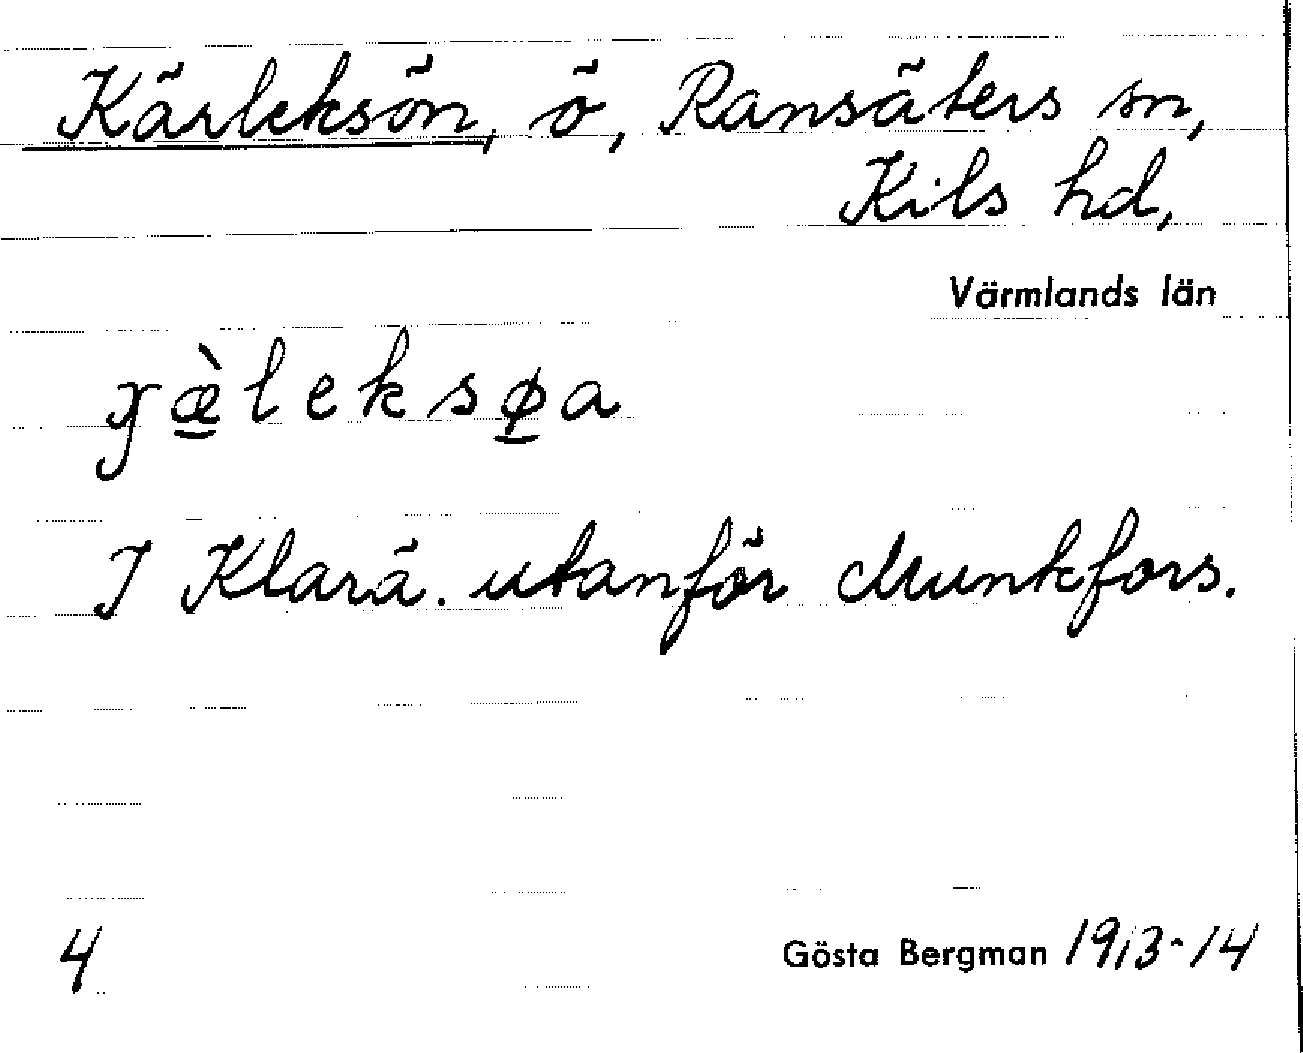 Kärleksön, ö, Ransäters sn,
Kils hd,
Värmlands län
I Klarä. utanför Munkfors.
4
Gösta Bergman 1913-14